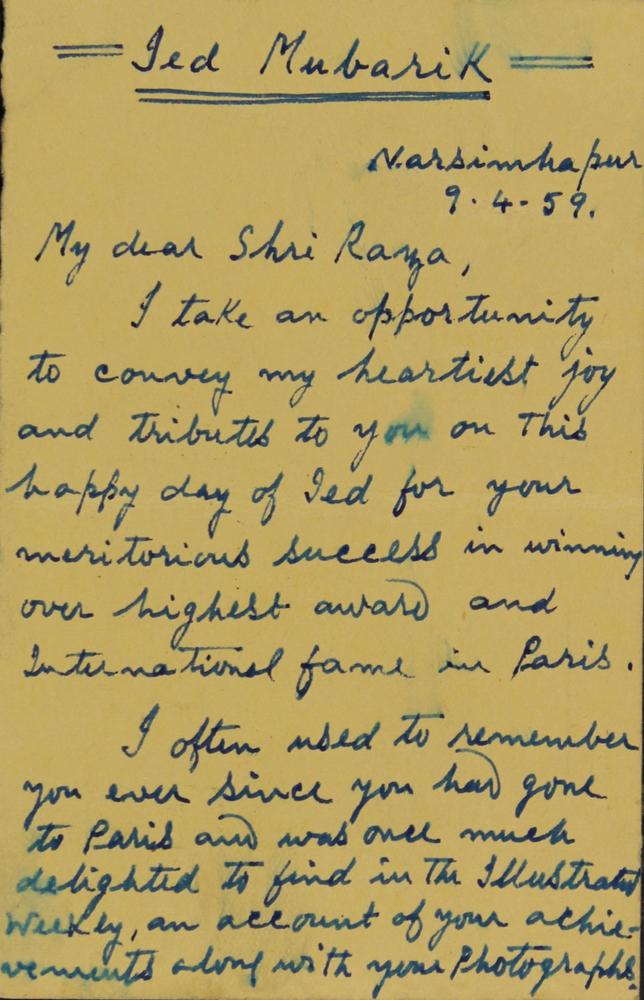 = Ied Mubarik =
Narsimhapur
9.4-59.
My dear Shri Raza,
I take an opportunity
to convey my heartiest joy
and tributes to you on This
happy day of Ied for your
meritorious success in winning
over highest award and
International fame in Paris.
I often used to remember
you ever since you had gone
to Paris and was once much
delighted to find in The Illustrated
Weekly, an account of your achie-
vements along with your Photographs.